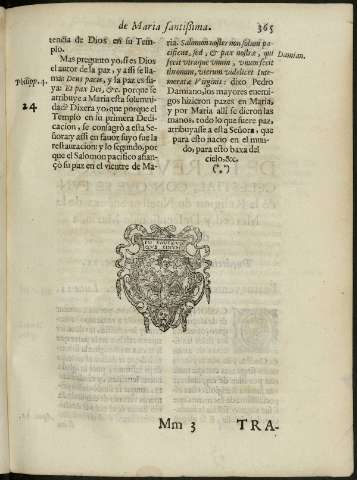 de Maria santissima. 365
tencia de Dios en su Tem-
plo.
Mas pregunto yo: si es Dios
el autor de la paz, y assi se lla-
Philipp. 4. ma: Deus pacis, y la paz es su-
ya: Et pax Dei, &c. porque se
24 atribuye a Maria esta solumni-
dad? Dixera yo: que porque el
Templo en su primera Dedi-
cacion, se consagrò a esta Se-
ñora: y assi en fauor suyo fue la
restauracion: y lo segundo, por
que el Salomon pacifico afian-
çò su paz en el vientre de Ma-
ria. Salomon noster non solum pa-
cificus, sed, & pax nostra, qui Damian.
fecit vtraque vnum, vnum fecit
thronum, vterum videlicet Inte-
meratæ Virginis: dixo Pedro
Damiano, los mayores enemi-
gos hizieron pazes en Maria,
y por Maria alli se dieron las
manos, todo lo que fuere paz,
atribuyasse a esta Señora, que
para esto nacio en el mun-
do, para esto baxa del
cielo, &c.
Mm 3 TRA-